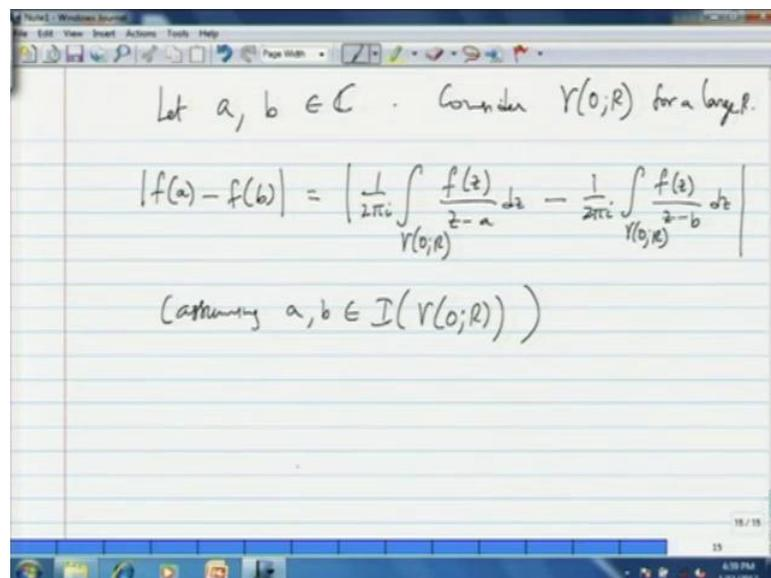 Note1 - Windows Journal
File Edit View Insert Actions Tools Help
Page Width
Let a, b ∈ ℂ . Consider γ(0;R) for a large R.
|f(a) - f(b)| = | 1/2πi ∫_{γ(0;R)} f(z)/(z-a) dz - 1/2πi ∫_{γ(0;R)} f(z)/(z-b) dz |
(assuming a, b ∈ I(γ(0;R)))
15 / 15
15
4:39 PM